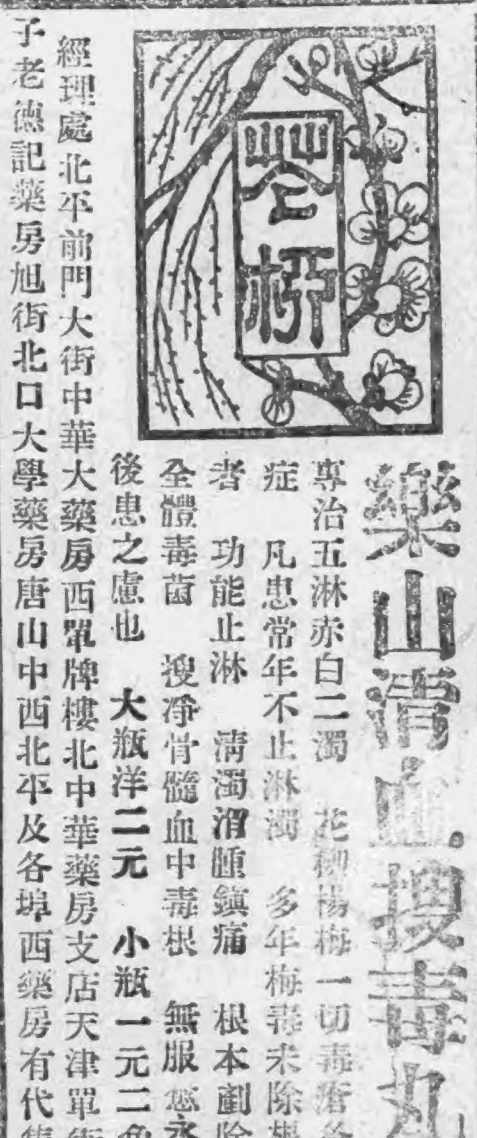 花柳
樂山清血搜毒丸
專治五淋赤白二濁 花柳楊梅一切毒瘡各
症 凡患常年不止淋濁 多年梅毒未除根
者 功能止淋 清濁消腫鎮痛 根本剷除
全體毒菌 搜凈骨髓血中毒根 無服愈永
後患之慮也 大瓶洋二元 小瓶一元二角
經理處北平前門大街中華大藥房西單牌樓北中華藥房支店天津單街
子老德記藥房旭街北口大學藥房唐山中西北平及各埠西藥房有代售